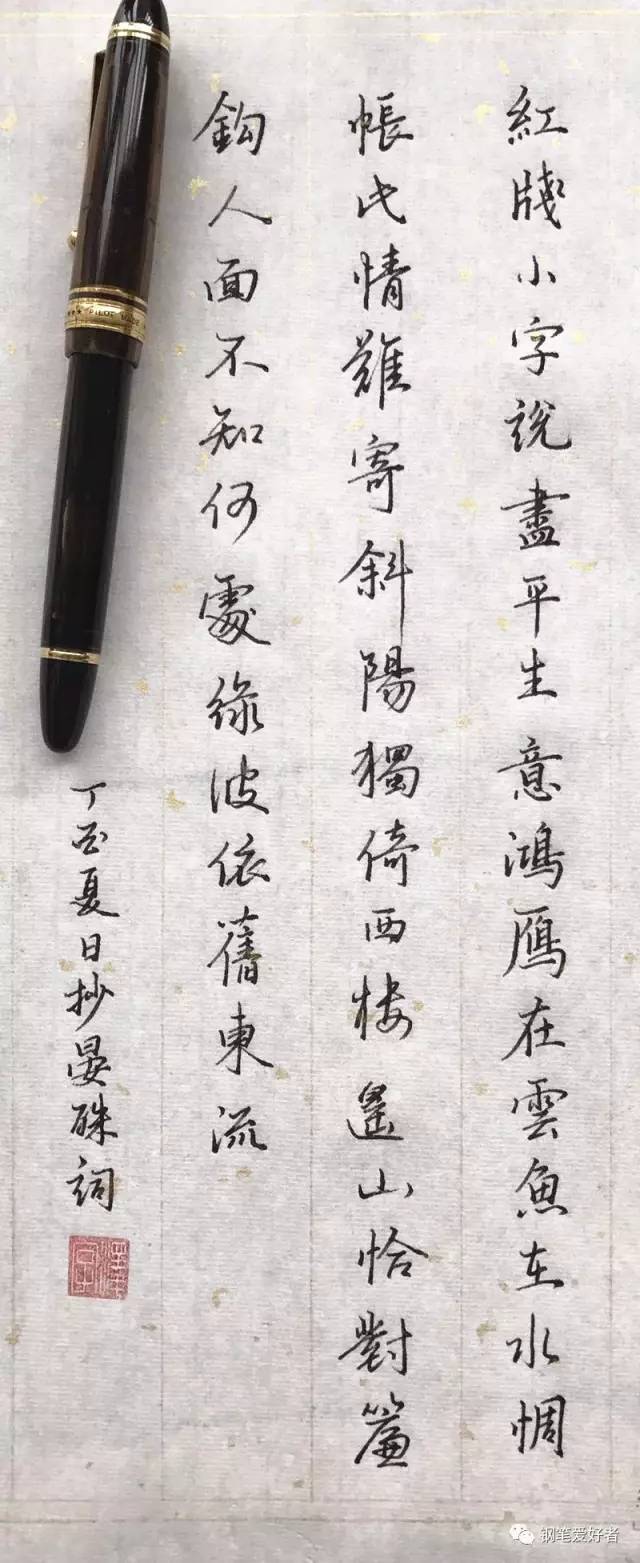 紅牋小字說盡平生意鴻鴈在雲魚在水惆
帳此情難寄斜陽獨倚西楼遙山恰對簾
鈎人面不知何處緑波依舊東流
丁酉夏日抄晏殊詞
PILOT
钢笔爱好者